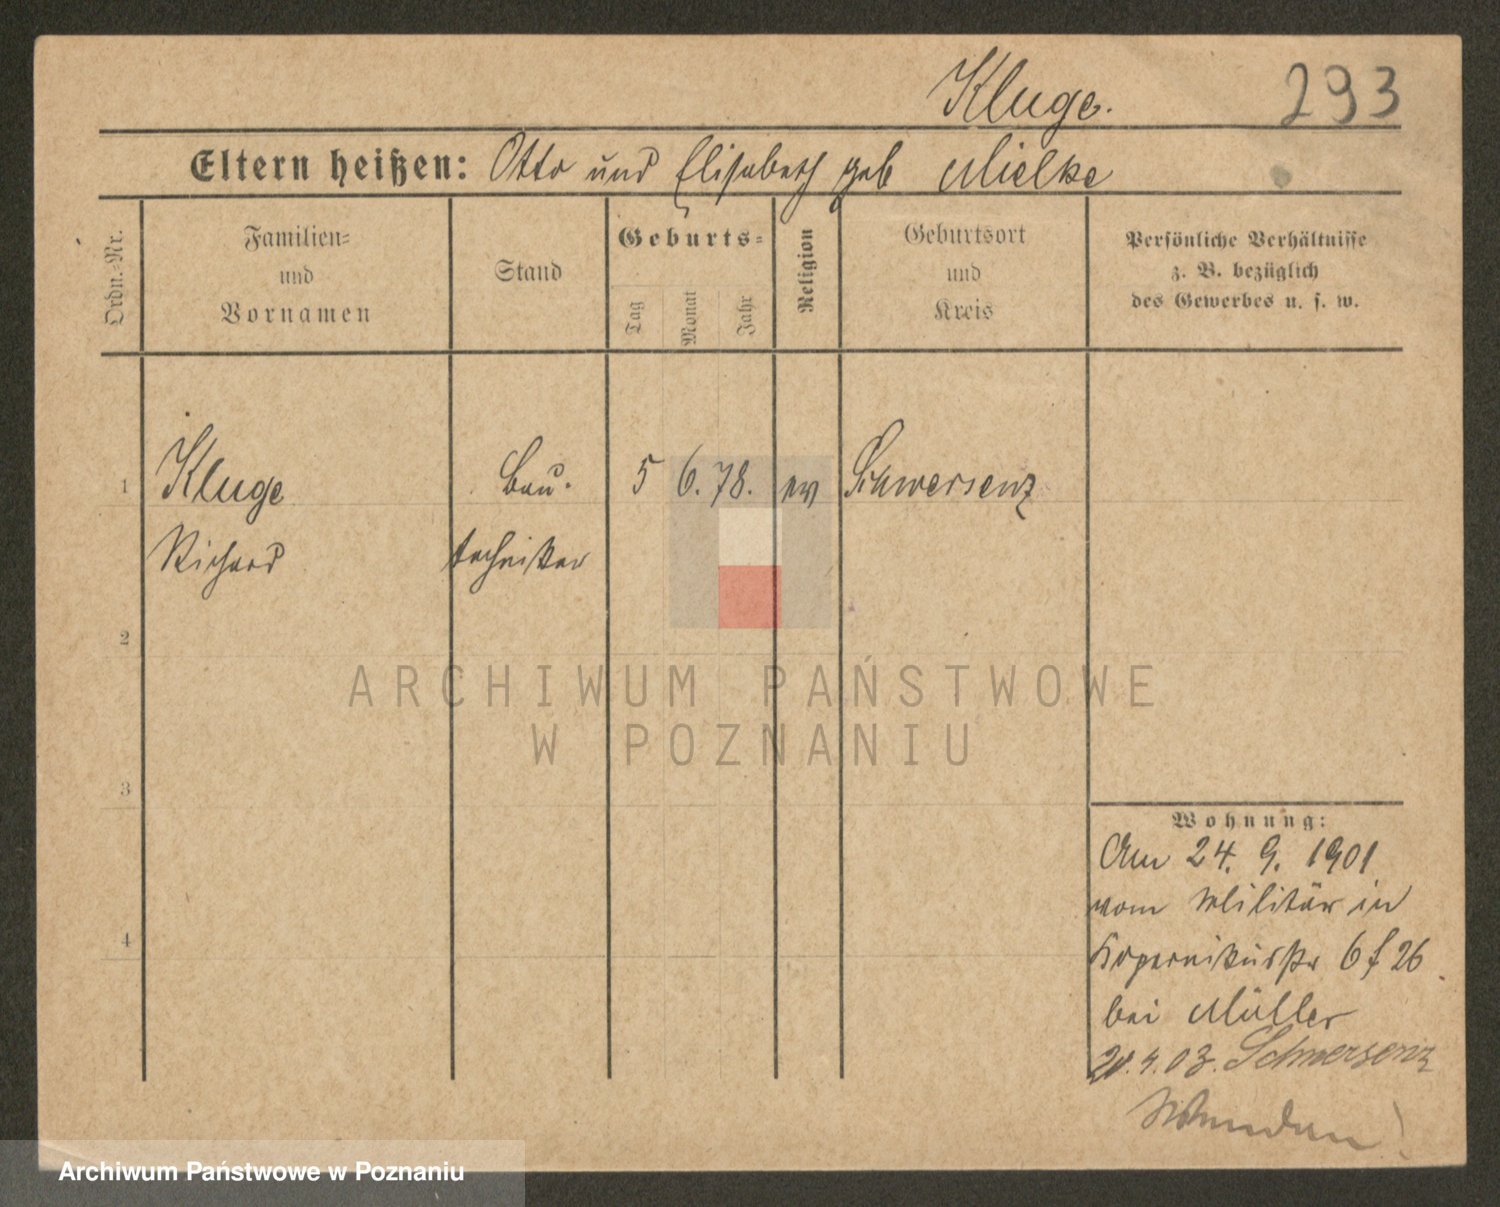 Kluge. 293
Eltern heißen: Otto und Elisabeth geb Mielke
Ordn.-Nr.
Familien-
und
Vornamen
Stand
Geburts-
Tag
Monat
Jahr
Religion
Geburtsort
und
Kreis
Persönliche Verhältnisse
z. B. bezüglich
des Gewerbes u. s. w.
1 Kluge Bau. 5 6. 78. ev Schwersenz
Richard techniker
2
3
4
ARCHIWUM PAŃSTWOWE
W POZNANIU
Wohnung:
Am 24. 9. 1901
vom Militär in
Kopernikusstr 6 f 26
bei Müller
20.4.03. Schwersenz
Archiwum Państwowe w Poznaniu